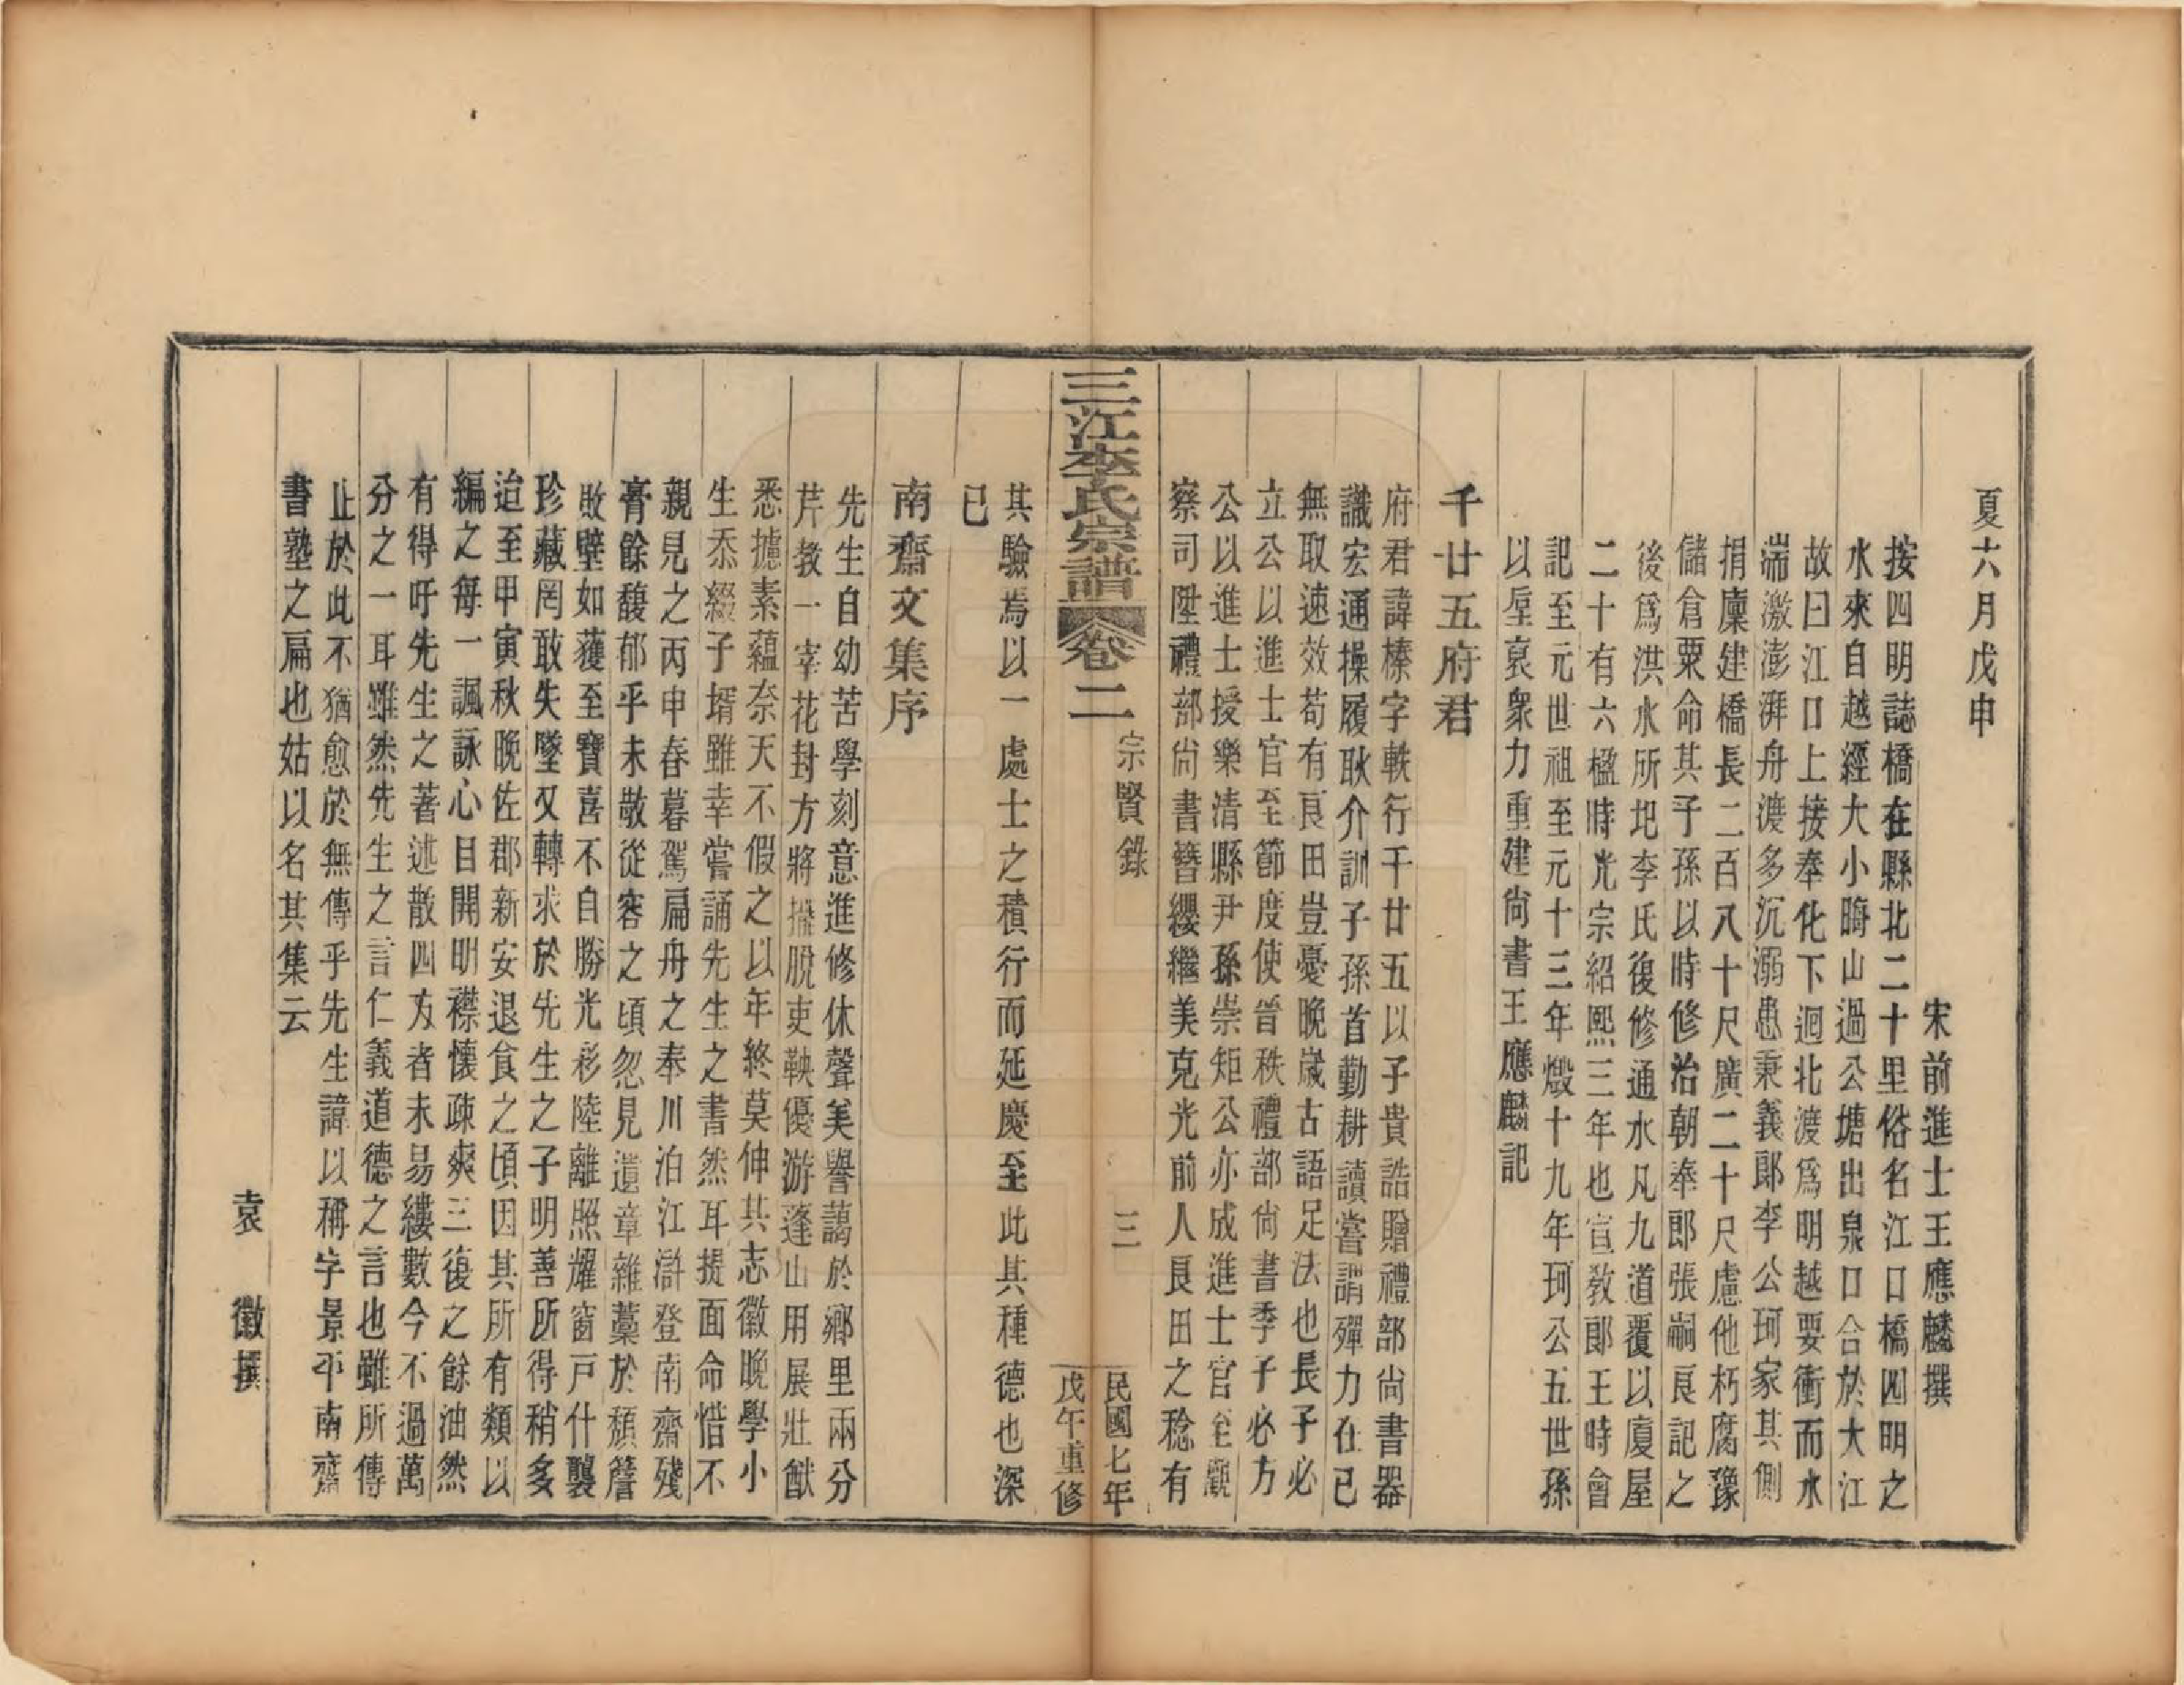 夏六月戊申
宋前進士王應麟撰
按四明誌橋在縣北二十里俗名江口橋四明之
水來自越經大小晦山過公塘出泉口合於大江
故曰江口上接奉化下迴北渡為明越要衝而水
湍激澎湃舟渡多沉溺患秉義郎李公珂家其側
捐廩建橋長二百八十尺廣二十尺慮他朽腐豫
儲倉粟命其子孫以時修治朝奉郎張嗣良記之
後爲洪水所圯李氏復修通水凡九道覆以廈屋
二十有六楹時光宗紹熙三年也宣教郎王時會
記至元世祖至元十三年燬十九年珂公五世孫
以垕裒衆力重建尚書王應麟記
千廿五府君
府君諱榛字軼行千廿五以子貴誥贈禮部尚書器
識宏通操履耿介訓子孫首勤耕讀嘗謂殫力在已
無取速效苟有良田豈憂晚歲古語足法也長子必
立公以進士官至節度使晉秩禮部尚書季子必方
公以進士授樂清縣尹孫崇矩公亦成進士官至觀
察司陞禮部尚書簪纓繼美克光前人良田之稔有
三江李氏宗譜 卷二 宗賢錄 三 民國七年戊午重修
其驗焉以一處士之積行而延慶至此其種德也深
已
南齋文集序
先生自幼苦學刻意進修休聲美譽藹於鄉里兩分
芹教一宰花封方將擺脫吏鞅優游蓬山用展壯猷
悉攄素蘊奈天不假之以年終莫伸其志徽晚學小
生忝綴子壻雖幸嘗誦先生之書然耳提面命惜不
親見之丙申春暮駕扁舟之奉川泊江滸登南齋殘
膏餘馥郁乎未散從容之頃忽見遺章雜藁於頹簷
敗壁如獲至寶喜不自勝光彩陸離照耀窗戸什襲
珍藏罔敢失墜又轉求於先生之子明善所得稍多
迨至甲寅秋晚佐郡新安退食之頃因其所有類以
編之每一諷詠心目開明襟懷疎爽三復之餘油然
有得吁先生之著述散四方者未易縷數今不過萬
分之一耳雖然先生之言仁義道德之言也雖所傳
止於此不猶愈於無傳乎先生諱以稱字景平南齋
書塾之扁也姑以名其集云
袁 徽撰